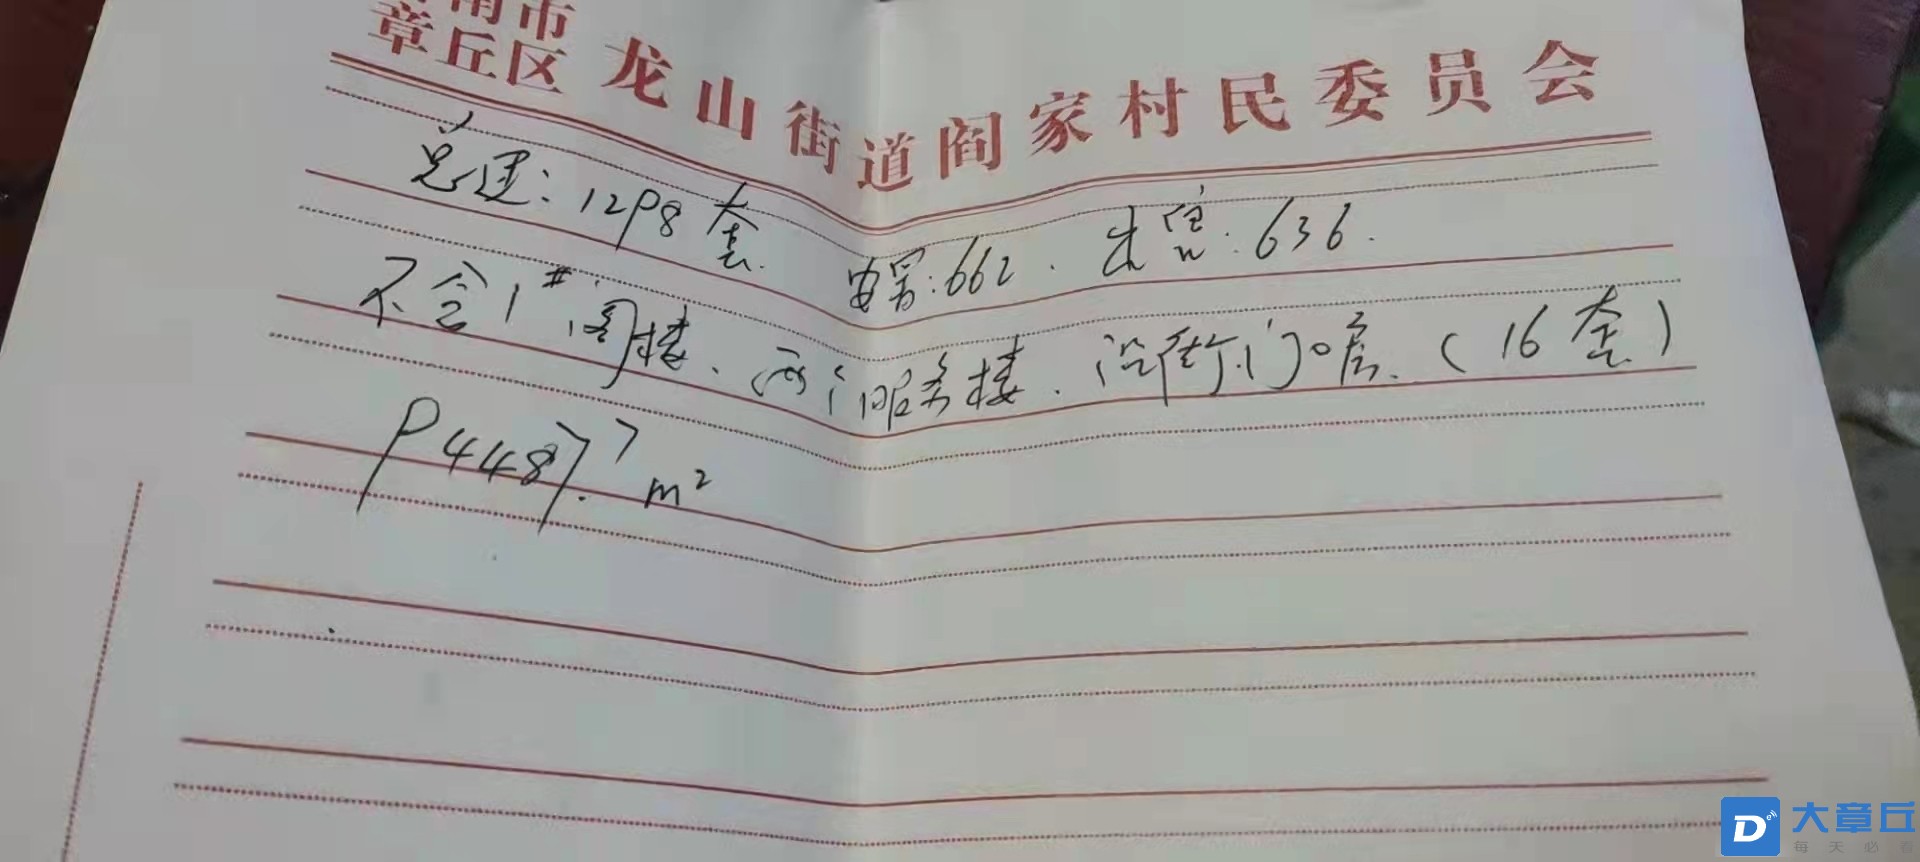 南市
章丘区 龙山街道阎家村民委员会
总建:1298套. 安置:662. 出售:636.
不含1#阁楼、两个服务楼、沿街门房.(16套)
94487.7m²
大章丘
每天必看